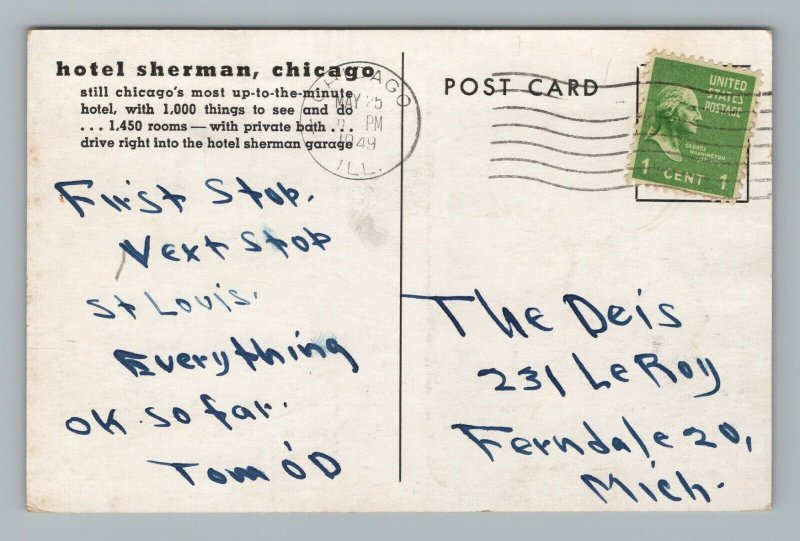 hotel sherman, chicago
still chicago's most up-to-the-minute
hotel, with 1,000 things to see and do
... 1,450 rooms — with private bath ...
drive right into the hotel sherman garage
CHICAGO
MAY 25
PM
1949
ILL.
POST CARD
UNITED
STATES
POSTAGE
GEORGE
WASHINGTON
1 CENT 1
First Stop.
Next Stop
St Louis.
Everything
OK so far.
Tom O'D
The Deis
231 LeRoy
Ferndale 20,
Mich.